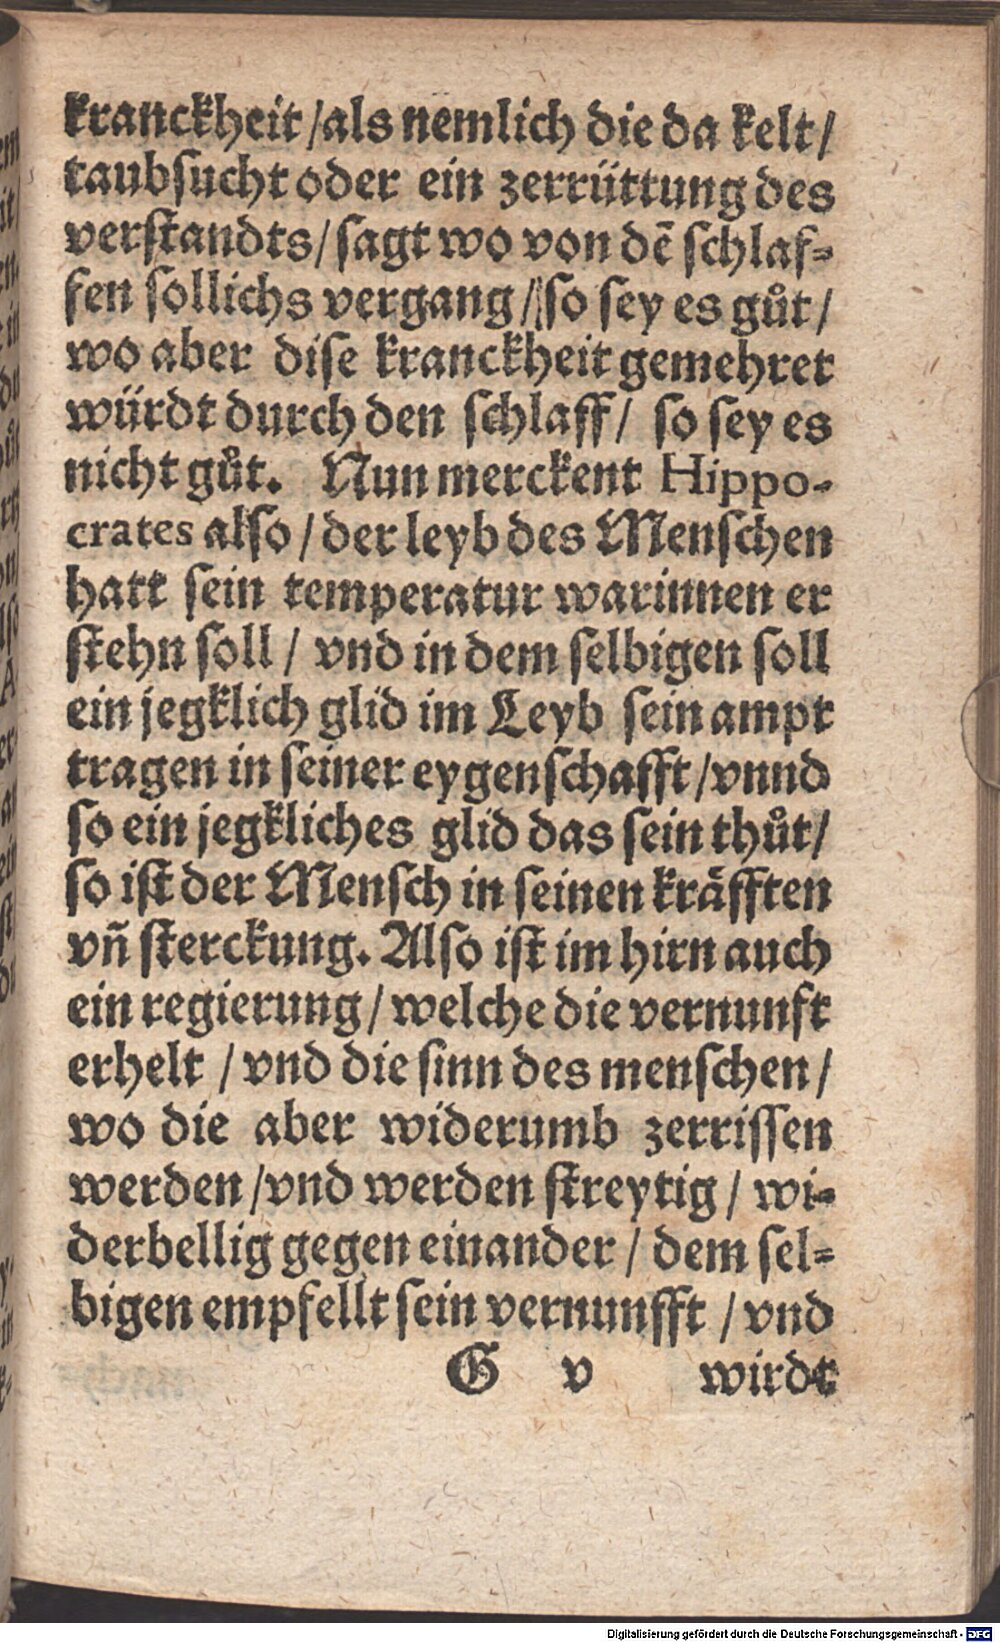 kranckheit /als nemlich die da kelt/
taubsucht oder ein zerrüttung des
verstandts/ sagt wo von dē schlaf-
fen sollichs vergang / so sey es gůt /
wo aber dise kranckheit gemehret
würdt durch den schlaff/ so sey es
nicht gůt. Nun merckent Hippo-
crates also / der leyb des Menschen
hatt sein temperatur warinnen er
stehn soll / vnd in dem selbigen soll
ein jegklich glid im Leyb sein ampt
tragen in seiner eygenschafft /vnnd
so ein jegkliches glid das sein thůt/
so ist der Mensch in seinen kräfften
vñ sterckung. Also ist im hirn auch
ein regierung / welche die vernunft
erhelt / vnd die sinn des menschen /
wo die aber widerumb zerrissen
werden /vnd werden streytig / wi-
derbellig gegen einander / dem sel-
bigen empfellt sein vernunfft / vnd
G v wirdt
Digitalisierung gefördert durch die Deutsche Forschungsgemeinschaft - DFG